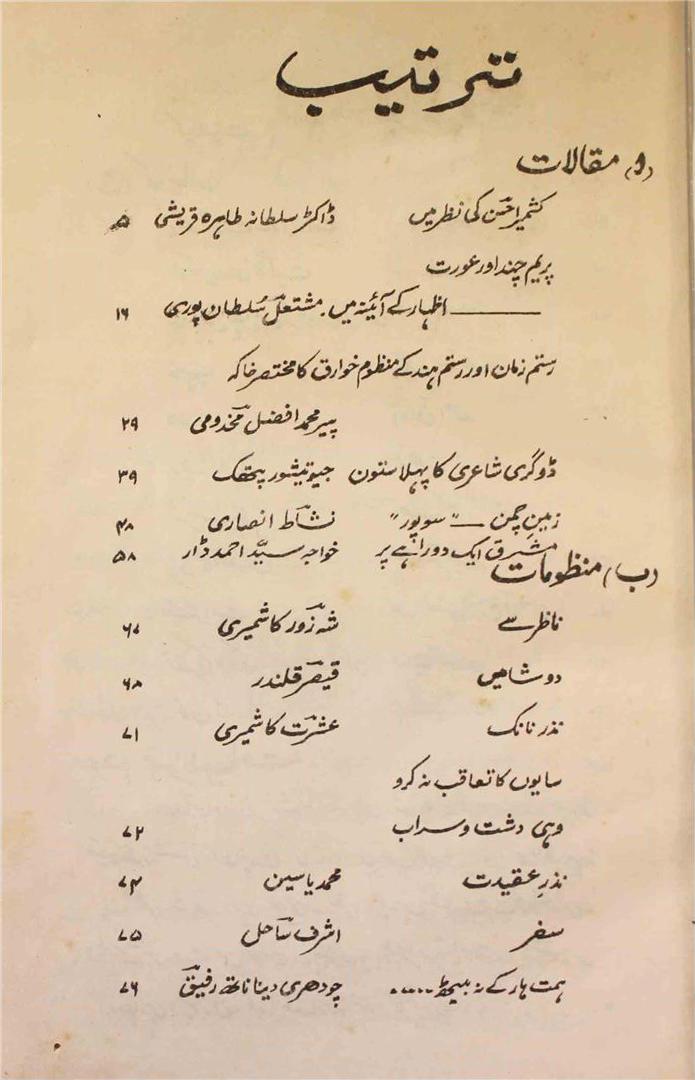 ترتیب
(ا) مقالات
کشمیر احسن کی نظر میں ڈاکٹر سلطانہ طاہرہ قریشی ۵
پریم چند اور عورت
——— اظہار کے آئینہ میں۔ مشتعل سُلطان پوری ۱۶
رستم زمان اور رستم ہند کے منظوم خوارق کا مختصر خاکہ
پیر محمد افضل مخدومی ۲۹
ڈوگری شاعری کا پہلا ستون جیوتیشور پتھک ۳۹
زمین چمن — "سوپور" نشاط انصاری ۴۸
مشرق ایک دوراہے پر خواجہ سیّد احمد ڈار ۵۸
(ب) منظومات
ناظر سے شہ زور کاشمیری ۶۷
دو شامیں قیصر قلندر ۶۸
نذر نانک عشرت کاشمیری ۷۱
سایوں کا تعاقب نہ کرو
وہی دشت و سراب ۷۲
نذرِ عقیدت محمد یاسین ۷۴
سفر اشرف ساحل ۷۵
ہمت ہار کے نہ بیٹھ ..... چودھری دینا ناتھ رفیق ۷۶